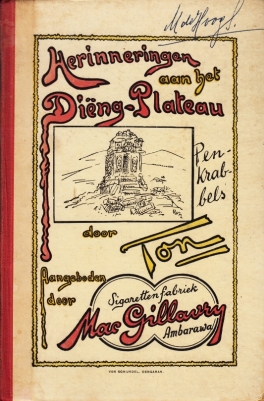 M de Hoog S.
Herinneringen
aan het
Diëng-Plateau
Pen-
krab-
bels
door
Ton
Aangeboden
door
Sigarettenfabriek
Mac Gillavry
Ambarawa